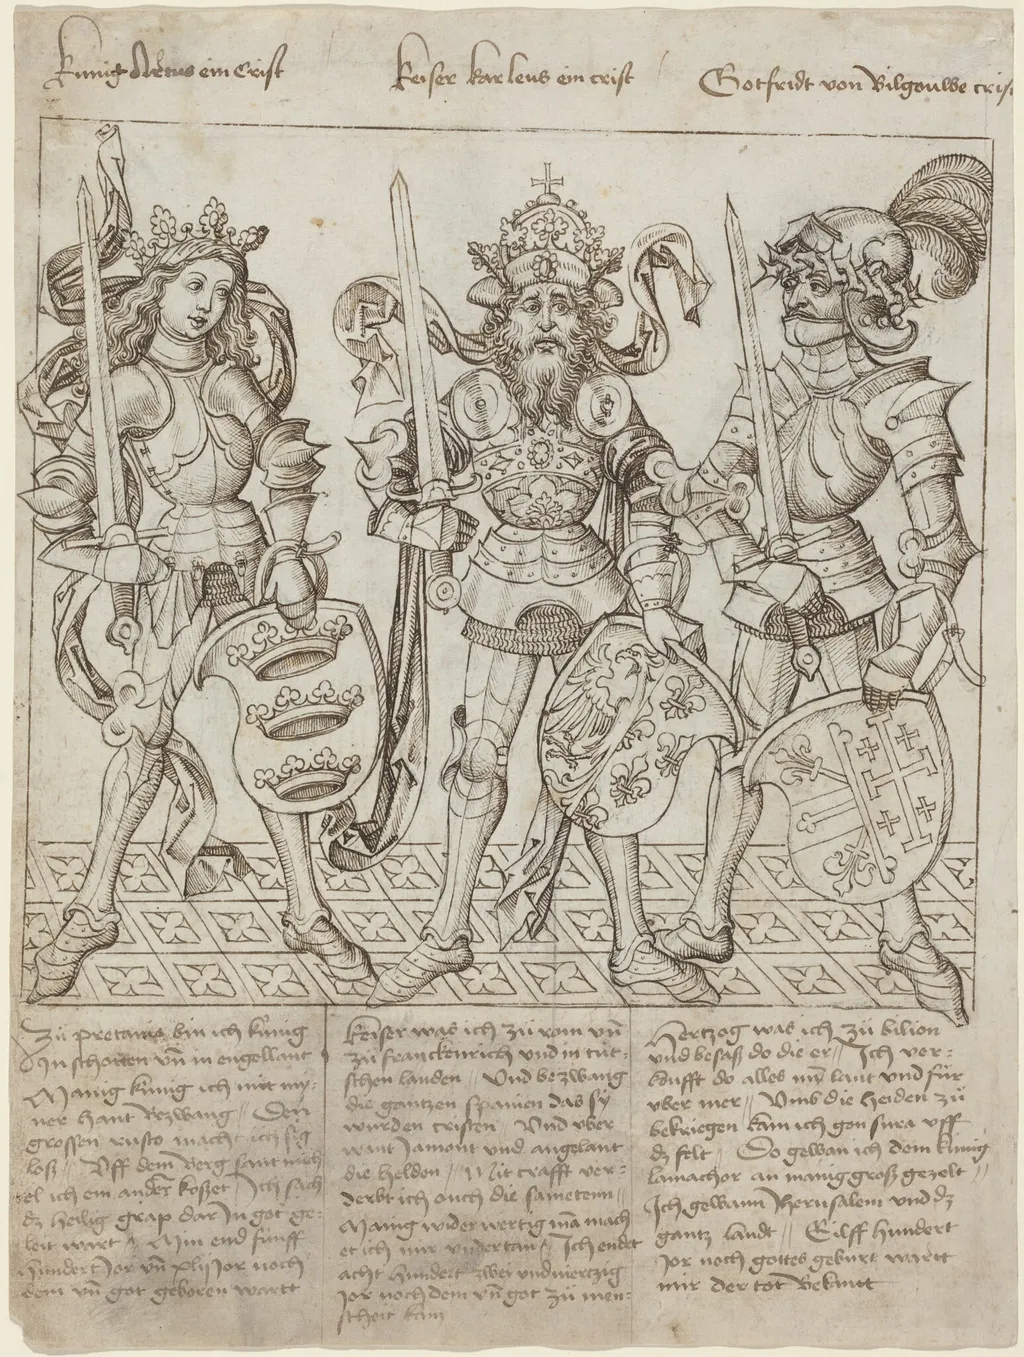 Kunig Artus ein Crist
Keiser karleus ein crist
Gotfridt von Bilgouwe crist
Zu pretania bin ich kunig
In schotten vn̄ in engellant
Manig kunig ich mit mÿ-
ner hant bezwang Den
grossen rusto macht ich sig
loß Vff dem berg sant mich
el ich ein ander koßet Ich sach
dz heilig grap dar In got ge-
leit wart Min end funff
hundert Jor vn̄ xlij Jor noch
dem vn̄ got geboren wartt
Keiser was ich zü rom vn̄
zü franckenrich vnd in tüt-
schen landen Vnd bezwang
die gantzen spanien das sÿ
wurden cristen Vnd vber
want Jamont vnd angelant
die helden Mit crafft ver-
derbt ich ouch die
Manig wider wertig mā mach
et ich mir vndertan Ich endet
acht hundert zwei vnd viertzig
Jor noch dem vn̄ got zü men-
scheit kam
Hertzog was ich zü bilion
vnd besaß do die er Ich ver-
koufft do alles mÿ lant vnd für
vber mer Vmb die heiden zü
bekriegen kam ich gon sura vff
dz felt Do gewan ich dem kunig
lamachor an manig groß gezelt
Ich gewann Jherusalem vnd dz
gantz landt Eilff hundert
Jor noch gottes geburt wartt
mir der tot bekant